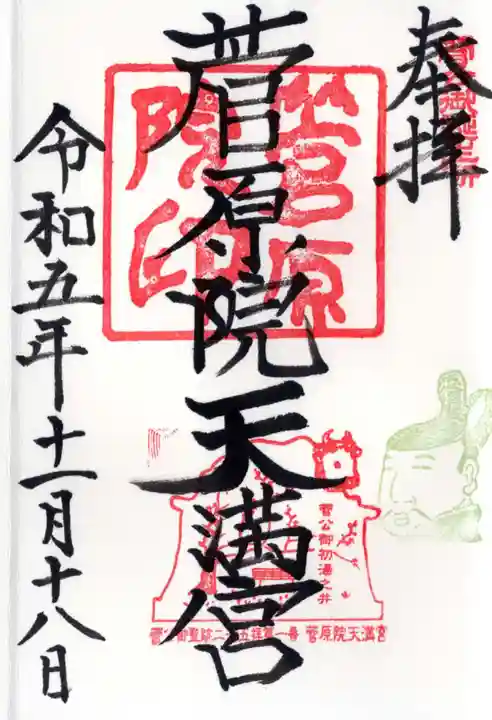 奉拝
菅原院天満宮
令和五年十一月十八日
菅原
院印
菅公御初湯之井
菅公御聖跡二十五拝第一番 菅原院天満宮